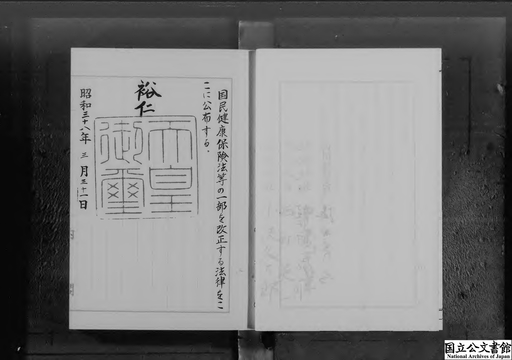 国民健康保険法等の一部を改正する法律をこ
こに公布する。
裕仁
天皇
御璽
昭和三十八年三月三十一日
国立公文書館
National Archives of Japan